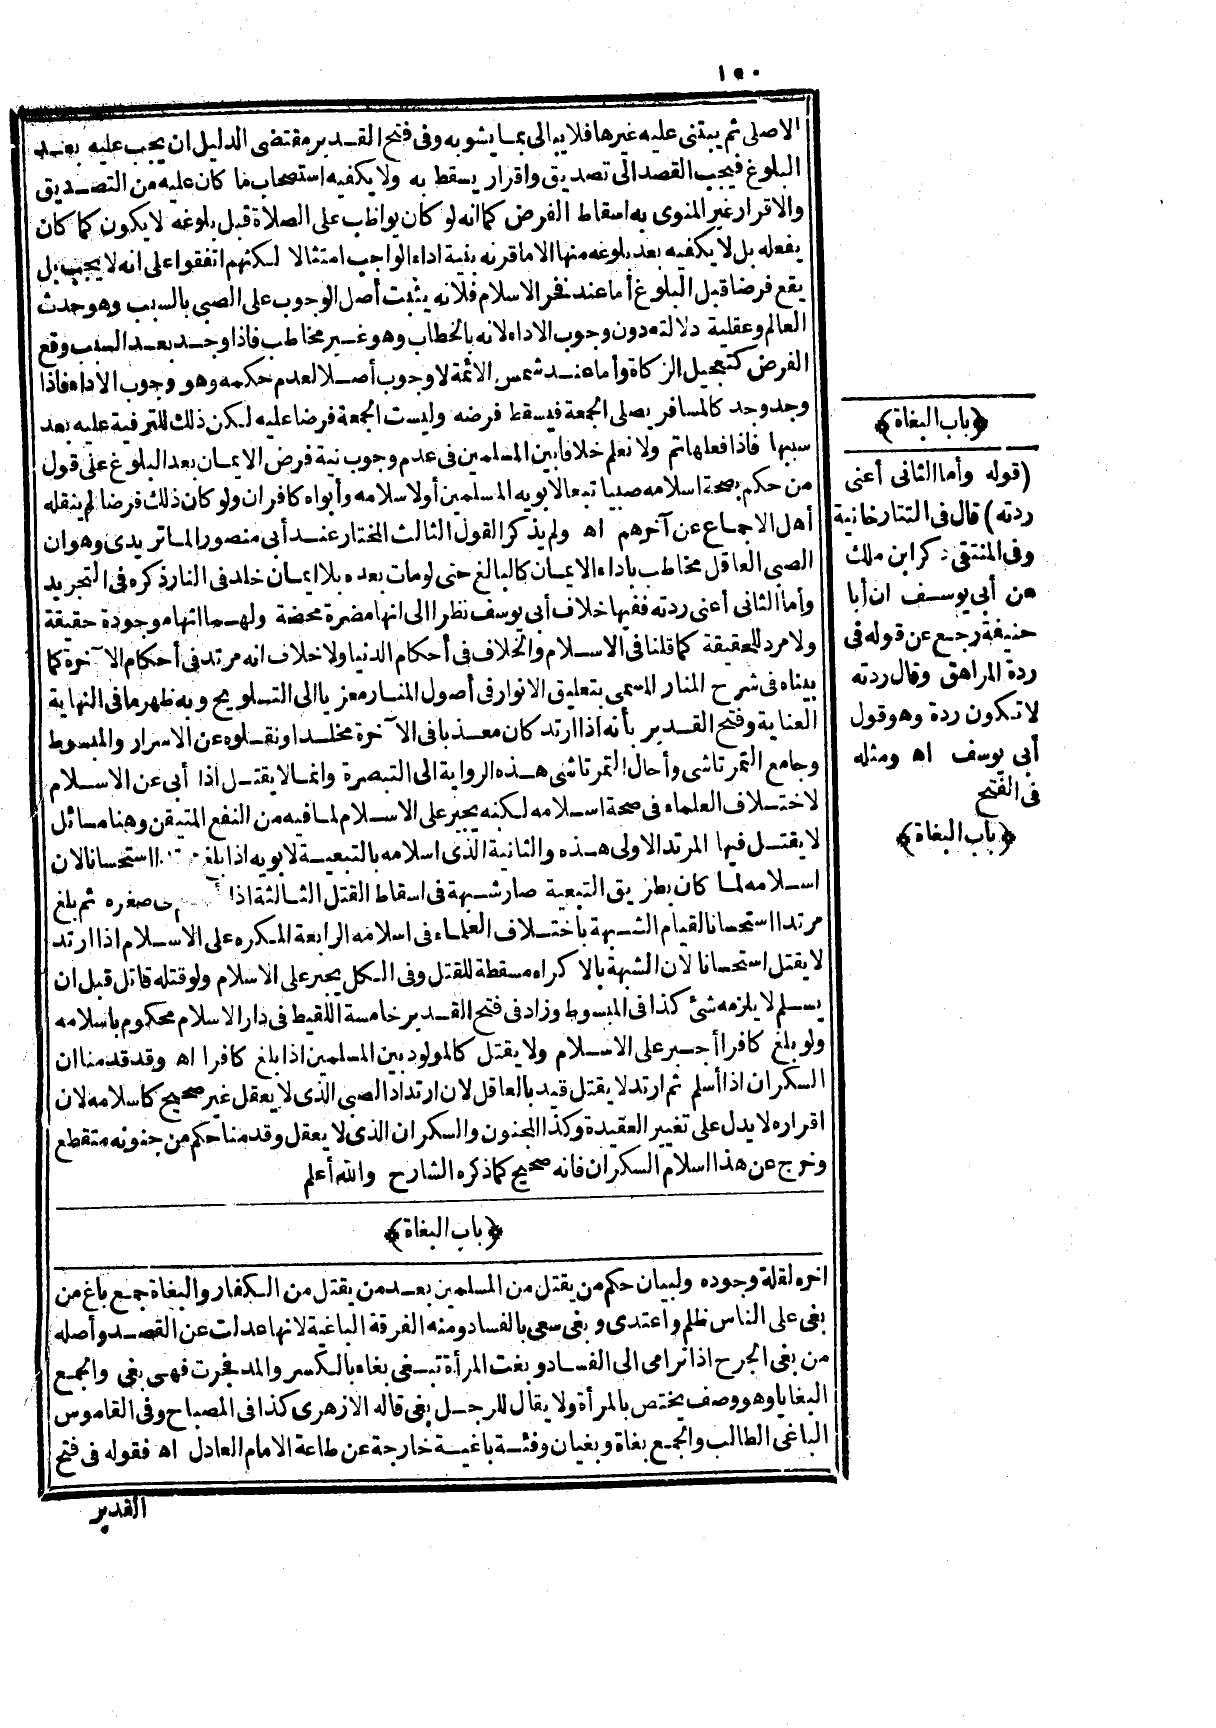 ١٥٠
الاصلى ثم يبتنى عليه غيرها فلا يبالى بما يشوبه وفى فتح القدير مقتضى الدليل ان يجب عليه بعد
البلوغ فيجب القصد الى تصديق واقرار يسقط به ولا يكفيه استصحاب ما كان عليه من التصديق
والاقرار غير المنوى به اسقاط الفرض كما انه لو كان يواظب على الصلاة قبل بلوغه لا يكون كما كان
يفعله بل لا يكفيه بعد بلوغه منها الا ما قرنه بنية اداء الواجب امتثالا لكنهم اتفقوا على انه لا يجب بل
يقع فرضا قبل البلوغ أما عند فخر الاسلام فلانه يثبت أصل الوجوب على الصبى بالسبب وهو حدث
العالم وعقلية دلالته دون وجوب الاداء لانه بالخطاب وهو غير مخاطب فاذا وجد بعد السبب وقع
الفرض كتعجيل الزكاة وأما عند شمس الائمة لا وجوب أصلا لعدم حكمه وهو وجوب الاداء فاذا
وجد وجد كالمسافر يصلى الجمعة فيسقط فرضه وليست الجمعة فرضا عليه لكن ذلك للترفية عليه بعد
سببها فاذا فعلها تم ولا نعلم خلافا بين المسلمين فى عدم وجوب نية فرض الايمان بعد البلوغ على قول
من حكم بصحة اسلامه صبيا تبعا لابويه المسلمين أو لاسلامه وأبواه كافران ولو كان ذلك فرضا لم ينقله
أهل الاجماع عن آخرهم اه ولم يذكر القول الثالث المختار عند أبى منصور الماتريدى وهو ان
الصبى العاقل مخاطب باداء الايمان كالبالغ حتى لو مات بعده بلا ايمان خلد فى النار ذكره فى التجريد
وأما الثانى أعنى ردته ففيها خلاف أبى يوسف نظرا الى انها مضرة محضة ولهما انها موجودة حقيقة
ولا مرد للحقيقة كما قلنا فى الاسلام والخلاف فى أحكام الدنيا ولا خلاف انه مرتد فى أحكام الآخرة كما
بيناه فى شرح المنار المسمى بتعليق الانوار فى أصول المنار معزيا الى التلويح وبه ظهر ما فى النهاية
العناية وفتح القدير بأنه اذا ارتد كان معذبا فى الآخرة مخلدا ونقلوه عن الاسرار والمبسوط
وجامع التمرتاشى وأحال التمرتاشى هذه الرواية الى التبصرة وانما لا يقتل اذا أبى عن الاسلام
لاختلاف العلماء فى صحة اسلامه لكنه يجبر على الاسلام لما فيه من النفع المتيقن وهنا مسائل
لا يقتل فيها المرتد الاولى هذه والثانية الذى اسلامه بالتبعية لابويه اذا بلغ استحسانا لان
اسلامه لما كان بطريق التبعية صار شبهة فى اسقاط القتل الثالثة اذا صغره ثم بلغ
مرتدا استحسانا لقيام الشبهة باختلاف العلماء فى اسلامه الرابعة المكره على الاسلام اذا ارتد
لا يقتل استحسانا لان الشبهة بالاكراه مسقطة للقتل وفى الكل يجبر على الاسلام ولو قتله قاتل قبل ان
يسلم لا يلزمه شئ كذا فى المبسوط وزاد فى فتح القدير خامسة اللقيط فى دار الاسلام محكوم باسلامه
ولو بلغ كافرا أجبر على الاسلام ولا يقتل كالمولود بين المسلمين اذا بلغ كافرا اه وقد قدمنا ان
السكران اذا أسلم ثم ارتد لا يقتل قيد بالعاقل لان ارتداد الصبى الذى لا يعقل غير صحيح كاسلامه لان
اقراره لا يدل على تغيير العقيدة وكذا المجنون والسكران الذى لا يعقل وقدمنا حكم من جنونه متقطع
وخرج عن هذا اسلام السكران فانه صحيح كما ذكره الشارح والله أعلم
﴿باب البغاة﴾
اخره لقلة وجوده ولبيان حكم من يقتل من المسلمين بعد من يقتل من الكفار والبغاة جمع باغ من
بغى على الناس ظلم واعتدى وبغى سعى بالفساد ومنه الفرقة الباغية لانها عدلت عن القصد وأصله
من بغى الجرح اذا ترامى الى الفساد وبغت المرأة تبغى بغاء بالكسر والمد فجرت فهى بغى والجمع
البغايا وهو وصف يختص بالمرأة ولا يقال للرجل بغى قاله الازهرى كذا فى المصباح وفى القاموس
الباغى الطالب والجمع بغاة وبغيان وفئة باغية خارجة عن طاعة الامام العادل اه فقوله فى فتح
القدير
﴿باب البغاة﴾
(قوله وأما الثانى أعنى
ردته) قال فى التتارخانية
وفى المنتقى ذكر ابن ملك
عن أبى يوسف ان أبا
حنيفة رجع عن قوله فى
ردة المراهق وقال ردته
لا تكون ردة وهو قول
أبى يوسف اه ومثله
فى الفتح
﴿باب البغاة﴾